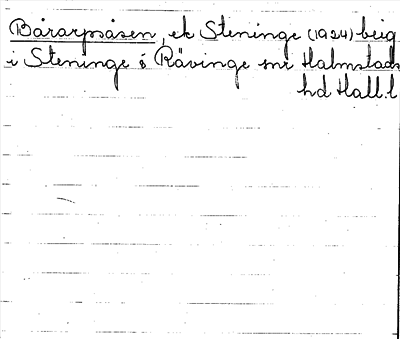 Bårarpsåsen, ek Steninge (1924) beig
i Steninge o Rävinge snr Halmstads
hd Hall.l